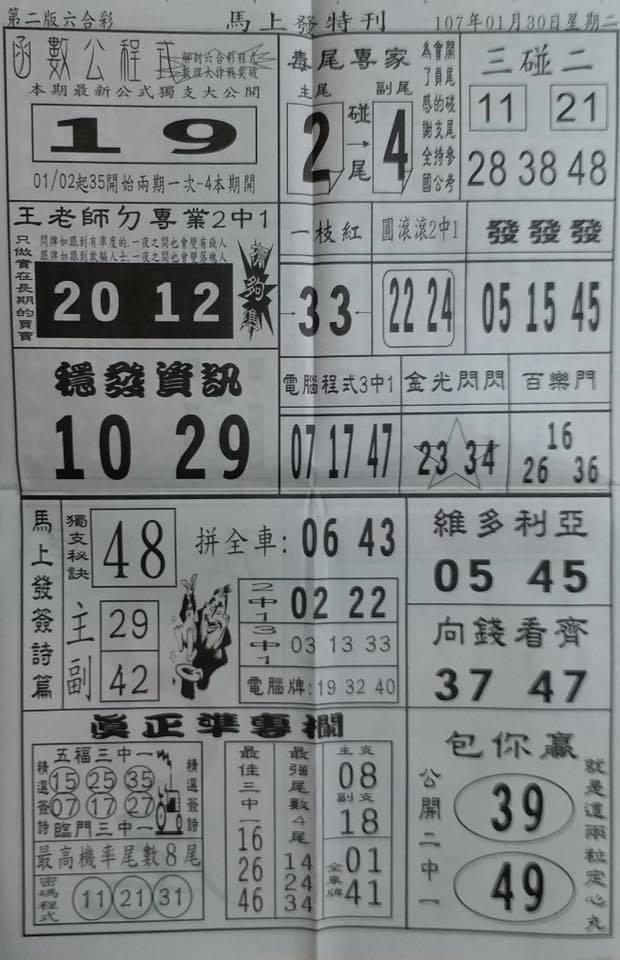 第二版六合彩 馬上發特刊 107年01月30日星期二
函數公程式
解剖六合彩程式
數理大徐戰突破
本期最新公式獨支大公開
19
01/02起35開始兩期一次-4本期開
毒尾專家
主尾 碰→尾 副尾
2 4
會開尾碰尾參考
為了員的支持
感謝全國公
三碰二
11 21
28 38 48
王老師ㄉ專業2中1
只做實在長期的買賣
問牌如跟到有準度的,一夜之間也會變有錢人
跟牌如跟到欺騙人士,一夜之間也會變落魄人
20 12
有夠準
一枝紅
33
圓滾滾2中1
22 24
發發發
05 15 45
穩發資訊
10 29
電腦程式3中1
07 17 47
金光閃閃
23 34
百樂門
16
26 36
馬上發簽詩篇
獨支秘訣
48
拼全車: 06 43
主 29
副 42
2中1 02 22
3中1 03 13 33
電腦牌:19 32 40
維多利亞
05 45
向錢看齊
37 47
真正準專欄
五福三中一
精選簽詩
15 25 35
07 17 27
精選簽詩
臨門三中一
最高機率尾數8尾
密碼程式
11 21 31
最佳三中一
16
26
46
最強尾數4尾
14
24
34
主支
08
副支
18
全車牌
01
41
包你贏
公開二中一
39
49
就是這兩粒定心丸